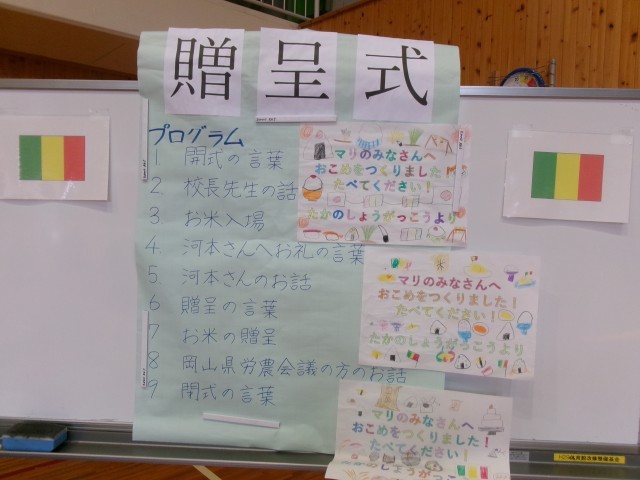 贈呈式
プログラム
1 開式の言葉
2 校長先生の話
3. お米入場
4. 河本さんへお礼の言葉
5. 河本さんのお話
6 贈呈の言葉
7 お米の贈呈
8 岡山県労農会議の方のお話
9 閉式の言葉
マリのみなさんへ
おこめをつくりました!
たべてください!
たかのしょうがっこうより
マリのみなさんへ
おこめをつくりました!
たべてください!
たかのしょうがっこうより
マリのみなさんへ
おこめをつくりました!
たべてください!
たかのしょうがっこうより